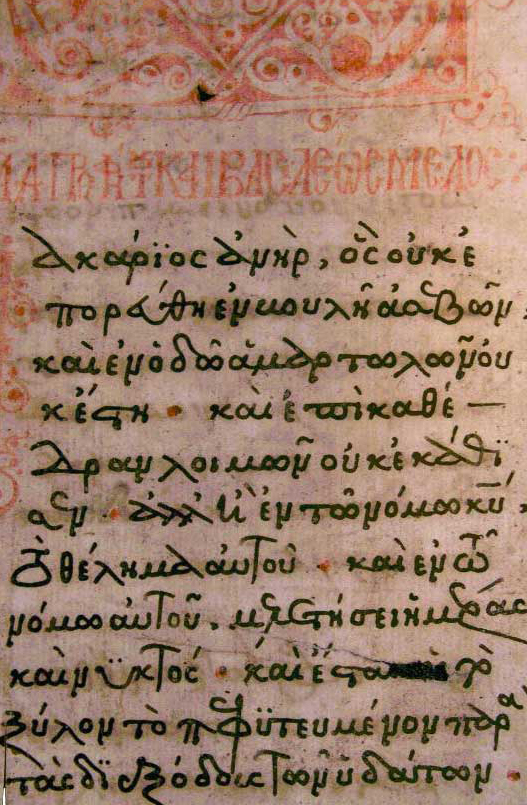 ακάριος ἀνὴρ, ὃς οὐκ ἐ
πορεύθη ἐν βουλῇ ἀσεβῶν,
καὶ ἐν ὁδῷ ἁμαρτωλῶν οὐ
κ ἔστη · καὶ ἐπὶ καθέ
δρᾳ λοιμῶν οὐκ ἐκάθϊ
σεν · ἀλλ' ἢ ἐν τῷ νόμῳ κῡ,
τὸ θέλημα αὐτοῦ · καὶ ἐν τῷ
νόμῳ αὐτοῦ, μελετήσει ἡμέρας
καὶ νϋκτός · καὶ ἔσται ὡς τὸ
ξύλον τὸ πεφϋτευμένον παρὰ
τὰς διεξόδους τῶν ὑδάτων ·